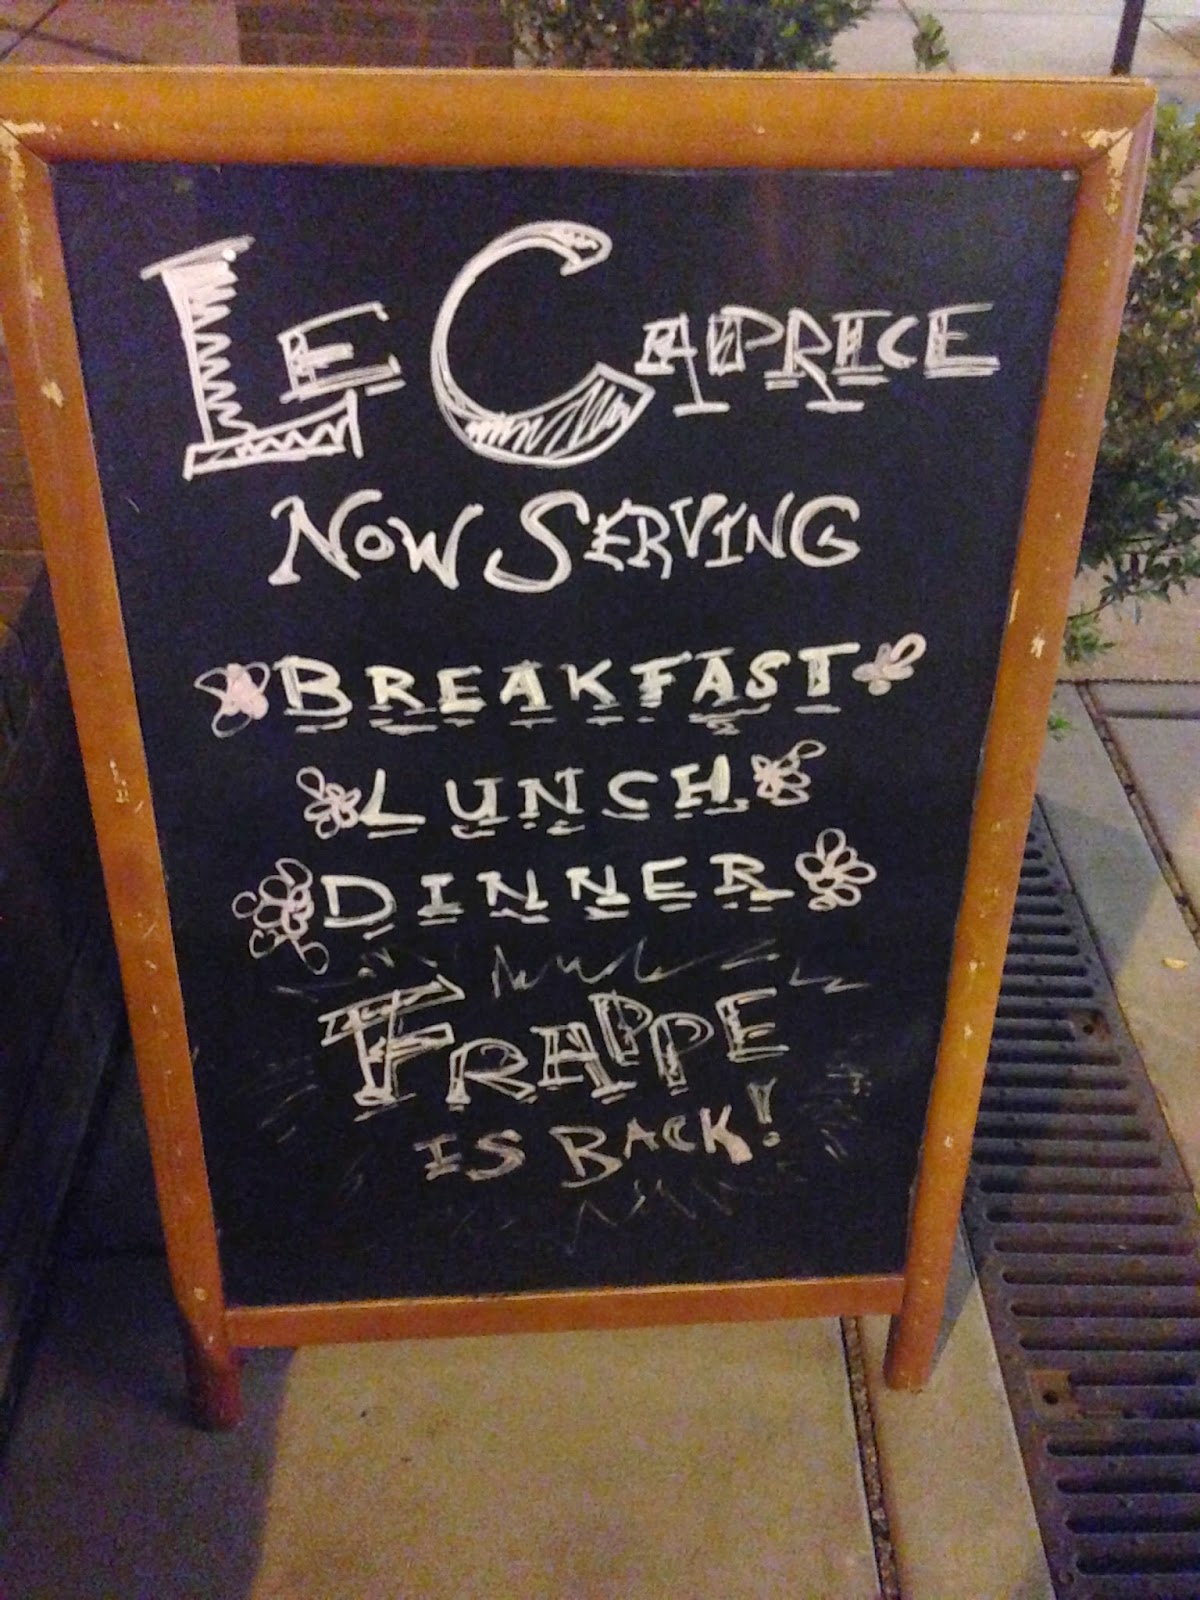 LE CAPRICE
NOW SERVING
BREAKFAST
LUNCH
DINNER
FRAPPE
IS BACK!